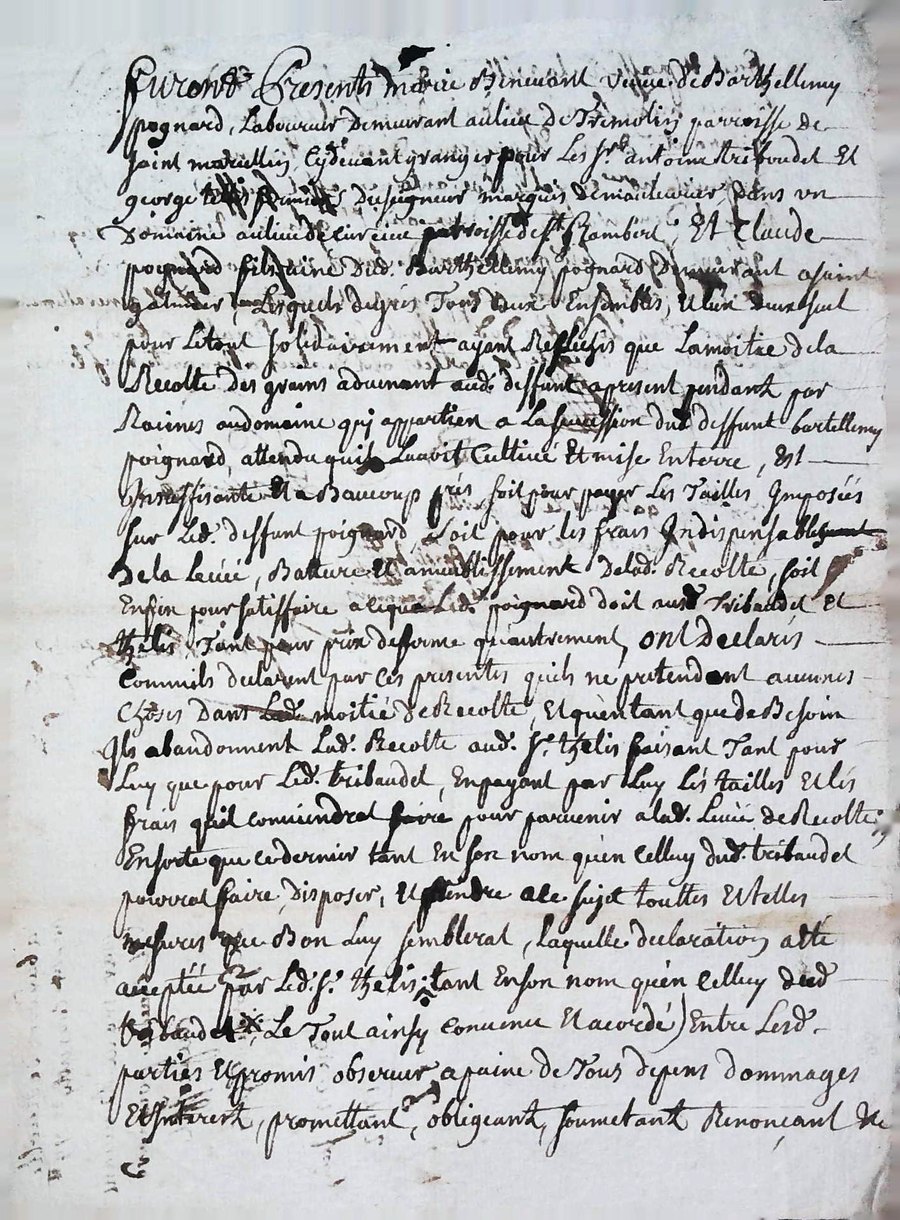 furent Presents marie Benevant veuve de Barthellemy
pognard, Laboureur Demeurant au lieu De Tremolin parroisse de
saint marcellin, Cydevant granger pour Les srs antoine tribaudet Et
george Du seigneur marquis dans un
Domaine au lieu de parroisse de st Rambert, Et Claude
poignard fils ainé Dud. Barthellemy pognard Demeurant a saint
galmier, Lesquels degrés Tous deux Ensembles, Et l'un deux seul
pour Le tout solidairement ayant Reflechis que La moitiee de la
Recolte Des grains advenant aud. deffunt apresent pendant par
Racines au domaine quy appartien a La sucession dud deffunt bartellemy
poignard, attendu quil Lavoit Cultivée Et mise En terre, Est
Insuffisante Et a Beaucoup prés, soit pour payer Les Tailles Imposées
sur Led. deffunt poignard, soit pour les frais Indispensables
de la Levée, Batture Et ameublissement De lad. Recolte, soit
Enfin pour satisfaire a ce que Led. poignard doit auxd Tribaudet Et
thelis, Tant pour prix de ferme qu'autrement, ont Declarés
Comme ils declarent par Ces presentes quils ne pretendent aucunes
Choses Dans Lad. moitié de Recolte, Et qu'en tant que de Besoin
Ils abandonnent Lad. Recolte aud. sr. thelis faisant Tant pour
Luy que pour Led. tribaudet, En payant par Luy Les tailles Et les
frais quil conviendrat faire pour parvenir a lad. Levée de Recolte,
En sorte que ce dernier tant En son nom qu'en Celluy dud. tribaudet
pourrat faire, Disposer, Et prendre a ce sujet touttes Et telles
mesures que Bon Luy semblerat, Laquelle declaration a été
acceptée par Led. sr. thelis tant En son nom qu'en Celluy dud
tribaudet, Le Tout ainsy Convenu Et acordé Entre Lesd.
parties Et promis observer a paine de Tous depens dommages
Et Interest, promettant, obligeant, soumetant Renonçant &c